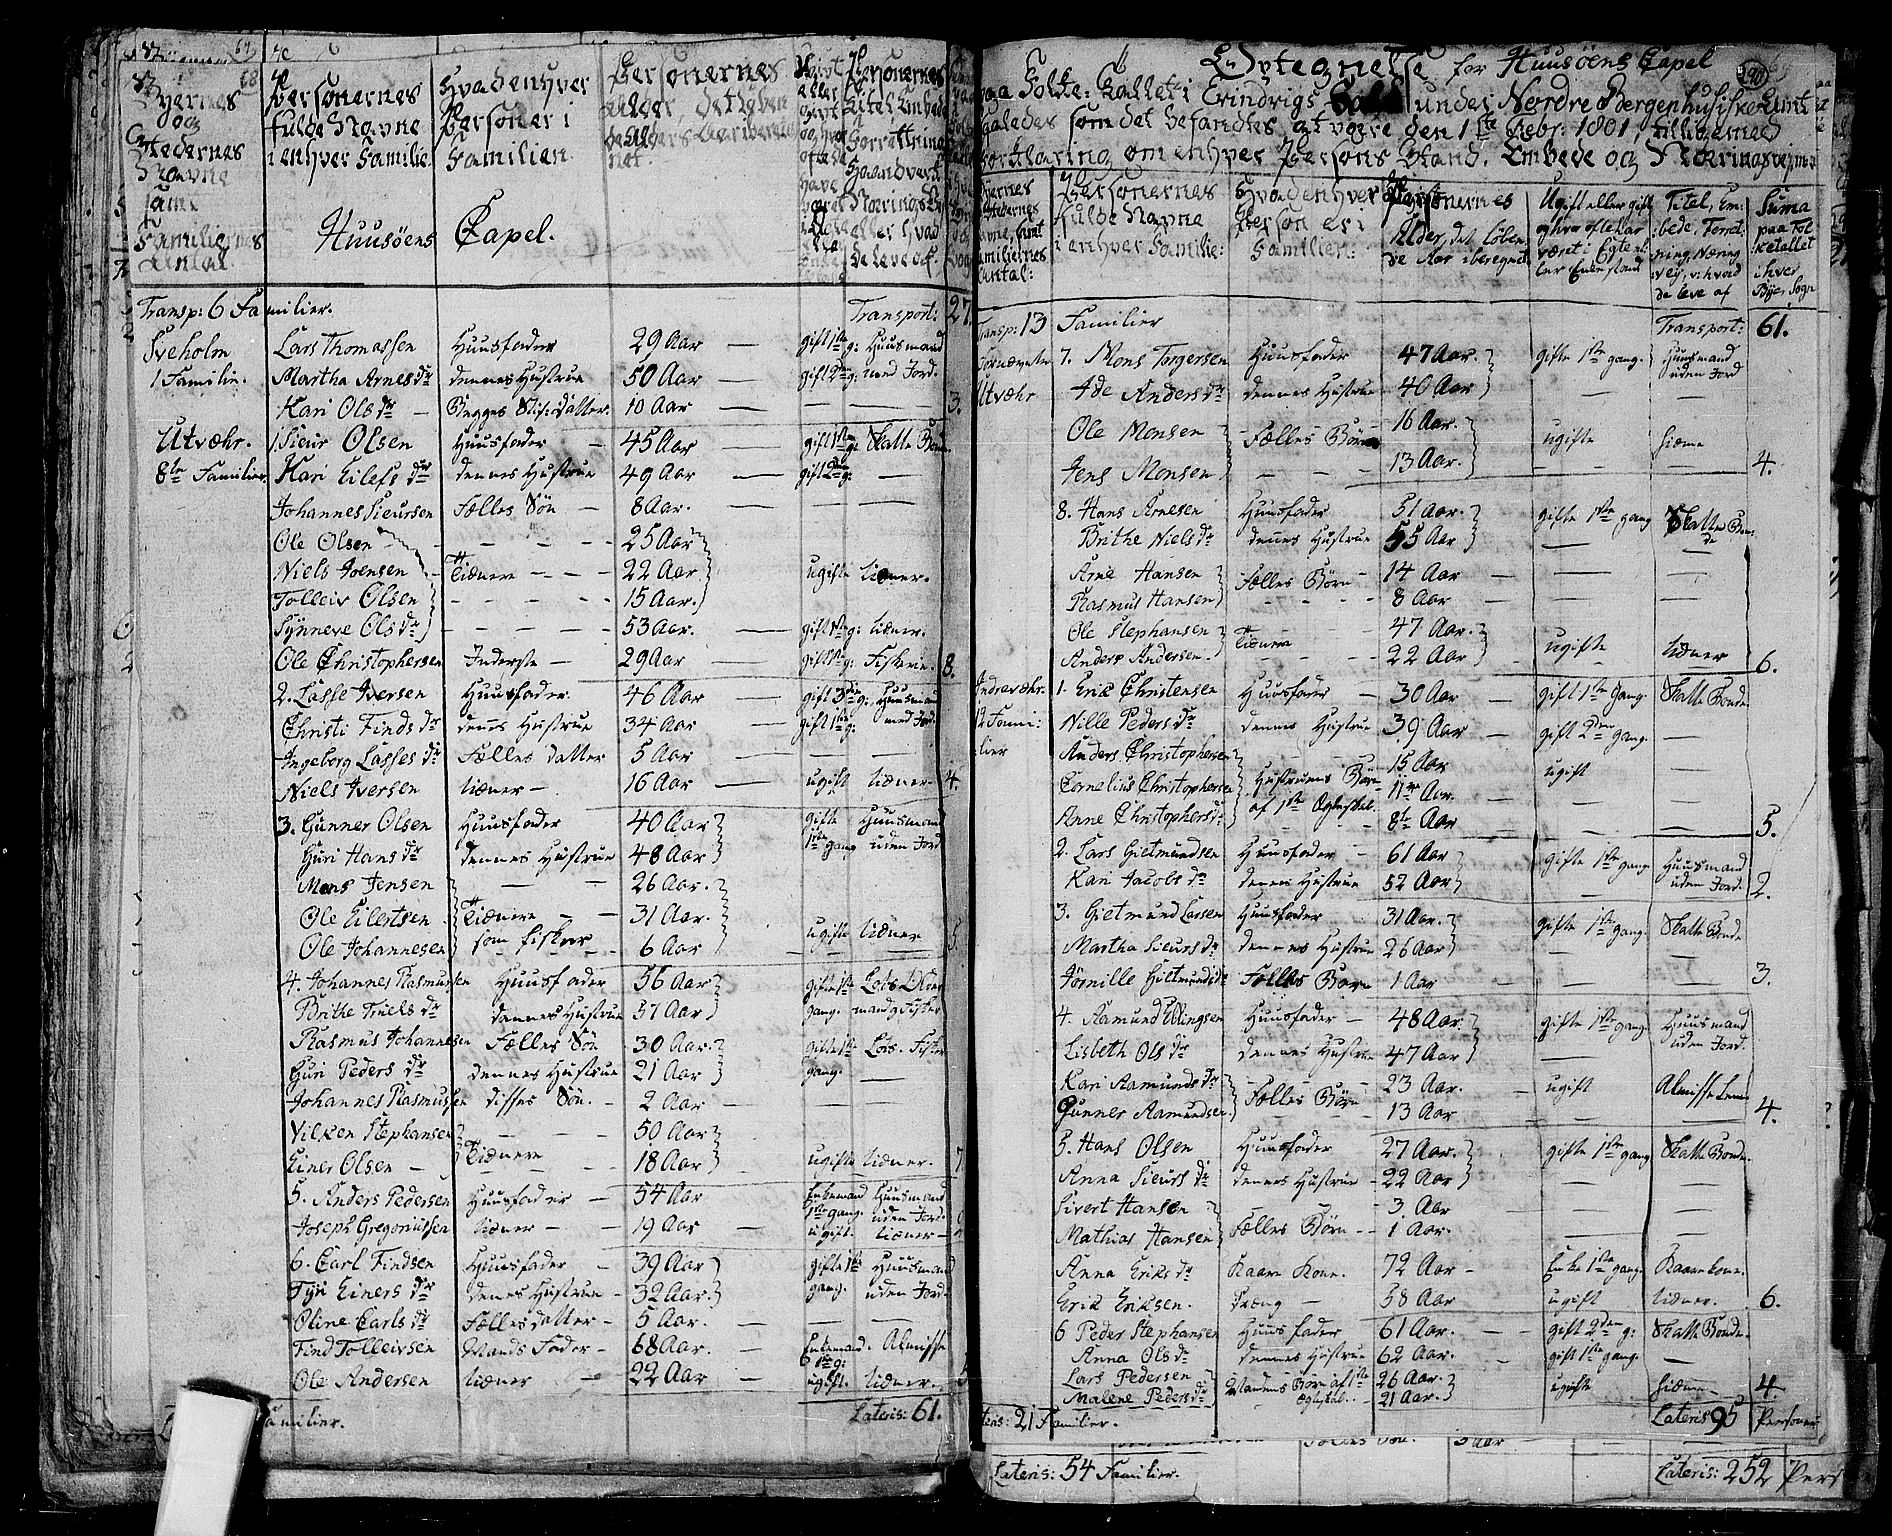 68
Byernes og Stedernes Navne samt Familiernes Antal.
Personernes fulde Navne i enhver Familie
Hvad enhver Person er i Familien.
Personernes Alder, det løbende Alders Aar iberegnet.
Huusöens Capel.
Transp: 6 Familier. Transport: 27.
Sveholm Lars Thomassen Huusfader 29 Aar gift 1ste g: Huusmand
1 Familie. Martha Arnes dr dennes Hustrue 50 Aar gift 2den g: med Jord.
Kari Ols dr Begges Stifdatter 10 Aar 3.
Utvæhr. 1. Sieur Olsen Huusfader 45 Aar gift 1ste g: Skatte Bonde
8te Familier. Kari Eilefs dr dennes Hustrue 49 Aar gift 2den g:
Johannes Sieursen Fælles Sön 8 Aar.
Ole Olsen 25 Aar
Niels Joensen Tienere 22 Aar ugifte tiener.
Tolleiv Olsen 15 Aar.
Synneve Ols dr 53 Aar. gift 1ste g: tiener.
Ole Christophersen Inderste 29 Aar gift 1ste g: Fiskerie. 8.
2. Lasse Iversen Huusfader 46 Aar gift 3die g: Huusmand
Christi Finds dr denes Hustrue 34 Aar gift 1ste g: med Jord.
Ingeborg Lasses dr Fælles datter 5 Aar
Niels Iversen tiener 16 Aar ugift tiener 4.
3. Gunner Olsen Huusfader 40 Aar gifte Huusmand
Guri Hans dr dennes Hustrue 48 Aar 1ste gang uden Jord
Mons Jensen 26 Aar.
Ole Eilertsen Tienere 31 Aar.
Ole Johannesen som fisker 6 Aar ugifte tiener 5.
4. Johannes Rasmussen Huusfader 56 Aar gifte 1ste
Brithe Truels dr dennes Hustrue 57 Aar gang. mand og Fisker
Rasmus Johannesen Fælles Sön 30 Aar. gifte 1ste Lots. Fisker
Guri Peders dr dennes Hustrue 21 Aar gang.
Johannes Rasmussen disses Sön. 2 Aar
Vilken Stephansen 50 Aar
Einer Olsen Tienere 18 Aar ugifte tiener. 7
5. Anders Pedersen Huusfader 54 Aar Enkemand Huusmand
1ste gang. uden Jord.
Joseph Gregoriussen tiener 19 Aar ugift. tiener
6. Carl Findsen Huusfader 39 Aar gifte 1ste Huusmand
Tyri Einers dr denes Hustrue 32 Aar gang. uden Jord.
Oline Carls dr Fælles datter 5 Aar.
Find Tolleivsen Mands Fader 68 Aar. Enkemand. Almisse
Ole Andersen tiener 22 Aar ugift. tiener. 5
Familier. Lateris: 61.
290
Fortegnelse for Huusöens Capel
paa Folke-Tallet i Evindvigs Sogn under Nordre Bergenhus Amt
saaledes som det befandtes, at være den 1ste Febr: 1801, tilligemed
forklaring om enhver Persons Stand, Embede og Næringsvej m:v:
Personernes fulde Navne i enhver Familie:
Hvad enhver Person er i Familien:
Personernes Alder, det löbende Aar iberegnet
Ugift eller gift og hvor ofte har været i Egteskab eller Enkestand
Titel, Embede, Forretning, Nærings vej, v: hvad de leve af
Suma paa Folketallet i hver Bye, Sogn
Transp: 13 Familier Transport: 61.
7. Mons Torgersen Huusfader 47 Aar. gifte 1ste gang. Huusmand
uden Jord
Utvæhr Ade Anders dr dennes Hustrue 40 Aar
Ole Monsen Fælles Börn 16 Aar ugifte hieme
Jens Monsen 13 Aar. 4.
8. Hans Arnesen Huusfader 51 Aar. gifte 1ste gang Skatte Bonde
Brithe Niels dr dennes Hustrue 55 Aar
Arne Hansen Fælles Börn 14 Aar
Rasmus Hansen 8 Aar
Ole Stephansen Tienere 47 Aar.
Anders Andersen. 22 Aar. ugifte tiener 6.
Indrevæhr. 1. Erik Christensen Huusfader 30 Aar gift 1ste Gang Skatte Bonde
12 Familier Nille Peders dr dennes Hustrue 39 Aar gift 2den gang.
Anders Christophersen 15 Aar ugift
Cornelius Christophersen Hustruens Börn 11 Aar.
Anne Christophers dr af 1ste Egteskab. 8te Aar 5.
2. Lars Gietmundsen Huusfader 61 Aar gifte 1ste gang. Huusmand
Kari Jacobs dr dennes Hustrue 52 Aar uden Jord. 2.
3. Gietmund Larsen Huusfader 31 Aar. gifte 1ste gang. Skatte Bonde
Martha Sieurs dr dennes Hustrue 26 Aar
Jörnille Gietmunds dr Fælles Barn 1 Aar 3.
4. Aamund Ellingsen Huusfader 48 Aar. gifte 1ste gang. Huusmand
Lisbeth Ols dr dennes Hustrue 47 Aar uden Jord.
Kari Aamunds dr Fælles Börn 23 Aar. ugift Almisse Lem
Gunner Aamundsen 13 Aar 4.
5. Hans Olsen Huusfader 27 Aar. gifte 1ste gang Skatte Bonde.
Anna Sieurs dr dennes Hustrue 22 Aar
Sivert Hansen 3 Aar
Mathias Hansen Fælles Börn 1 Aar.
Anna Eriks dr Kaare Kone. 72 Aar Enke 1ste gang. Kaarekone.
Erik Eriksen. Dreng 58 Aar ugift tiener. 6.
6 Peder Stephansen Huusfader 61 Aar. gift 2den g: Skatte Bonde.
Anna Ols dr dennes Hustrue 62 Aar. gift 1ste gang.
Lars Pedersen Mandens Börn af 1ste 26 Aar ugifte hieme
Malene Peders dr Egteskab. 21 Aar. 4.
21 Familier. Lateris 95 Personer
Lateris: 54 Familier. Lateris: 252 Pers